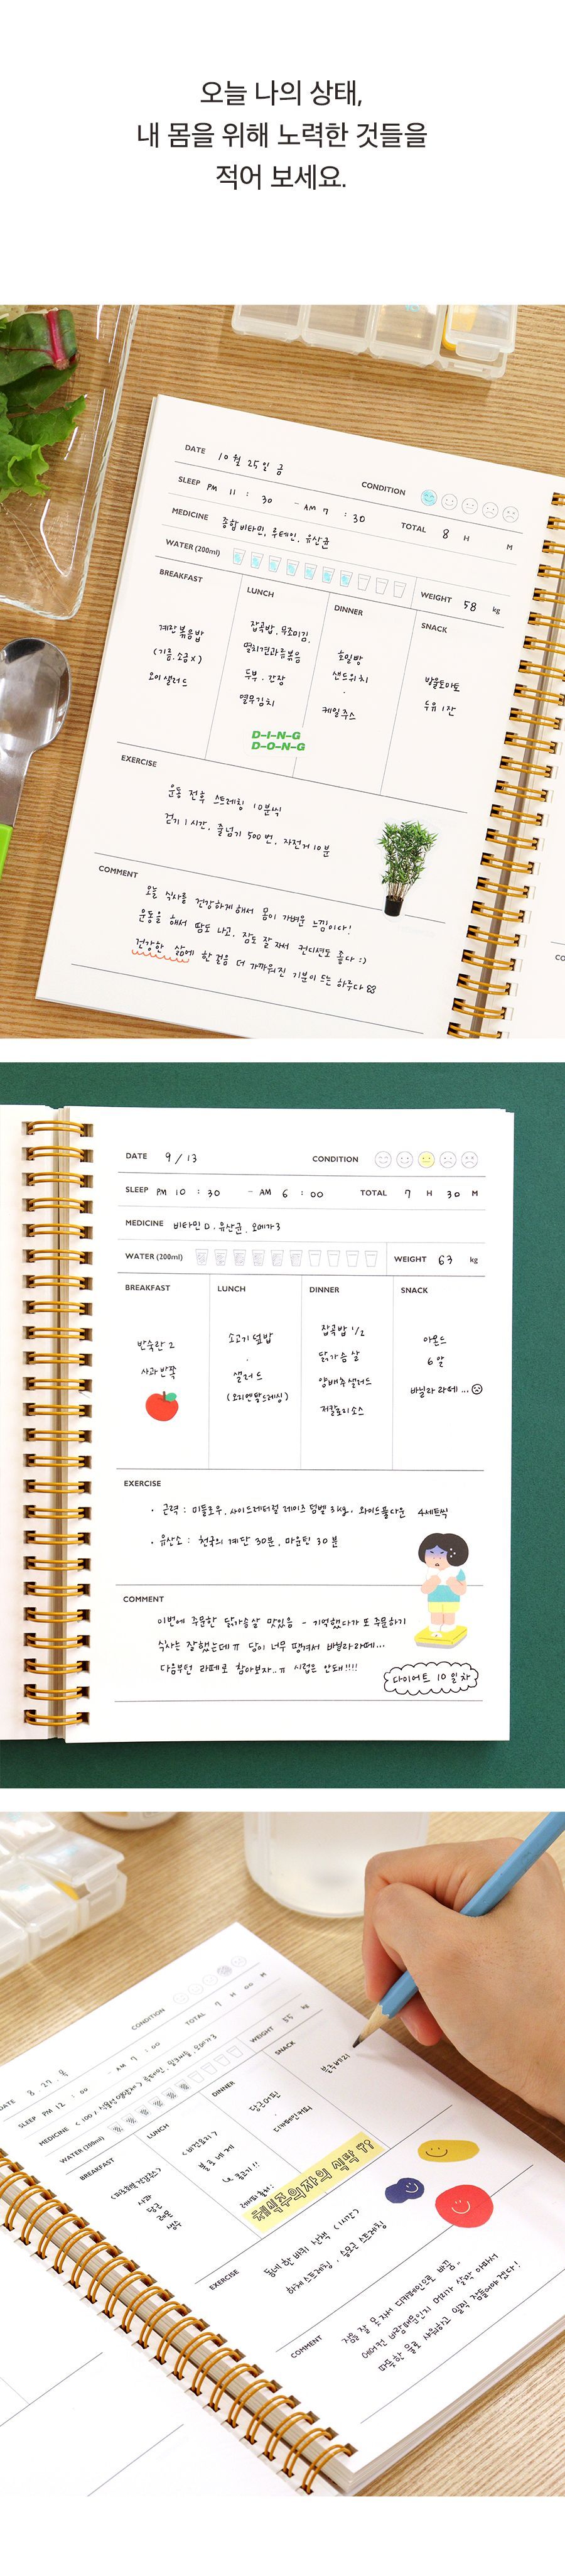 오늘 나의 상태,
내 몸을 위해 노력한 것들을
적어 보세요.
DATE 10월 25일 금
CONDITION
SLEEP PM 11 : 30 - AM 7 : 30 TOTAL 8 H M
MEDICINE 종합비타민, 루테인, 유산균
WATER (200ml) WEIGHT 58 kg
BREAKFAST
계란볶음밥
(기름, 소금 X)
오이샐러드
LUNCH
잡곡밥, 무조미김,
멸치견과류볶음
두부, 간장
열무김치
D-I-N-G
D-O-N-G
DINNER
호밀빵
샌드위치
케일주스
SNACK
방울토마토
두유 1잔
EXERCISE
운동 전후 스트레칭 10분씩
걷기 1시간, 줄넘기 500번, 자전거 10분
COMMENT
오늘 식사를 건강하게 해서 몸이 가벼운 느낌이다!
운동을 해서 땀도 나고, 잠도 잘 자서 컨디션도 좋다 :)
건강한 삶에 한 걸음 더 가까워진 기분이 드는 하루다
CO
DATE 9 / 13 CONDITION
SLEEP PM 10 : 30 - AM 6 : 00 TOTAL 7 H 30 M
MEDICINE 비타민 D, 유산균, 오메가3
WATER (200ml) WEIGHT 63 kg
BREAKFAST
반숙란 2
사과 반쪽
LUNCH
소고기 덮밥
샐러드
(오리엔탈드레싱)
DINNER
잡곡밥 1/2
닭가슴살
양배추샐러드
저칼로리소스
SNACK
아몬드
6알
바닐라 라떼 ...
EXERCISE
· 근력 : 미들로우, 사이드레터럴 레이즈 덤벨 3kg, 와이드풀다운 4세트씩
· 유산소 : 천국의 계단 30분, 마운틴 30분
COMMENT
이번에 주문한 닭가슴살 맛있음 - 기억했다가 또 주문하기
식사는 잘했는데ㅠ 당이 너무 땡겨서 바닐라라떼...
다음부턴 라떼로 참아보자..ㅠ 시럽은 안돼!!!!
다이어트 10일차
CONDITION
DATE 8. 27. 목
TOTAL 7 H 00 M
SLEEP PM 12 : 00 - AM 7 : 00
MEDICINE
WATER (200ml) WEIGHT 55 kg
BREAKFAST
사과
당근
레몬
생수
LUNCH
DINNER
SNACK
블루베리
당근라페
디카페인커피
채식주의자의 식탁
EXERCISE
동네 한 바퀴 산책 (1시간)
하체 스트레칭, 승모근 스트레칭
COMMENT
잠을 잘 못 자서 디카페인으로 바꿈~
에어컨 바람때문인지 머리가 살짝 아파서
따뜻한 물로 샤워하고 일찍 잠들어야겠다!